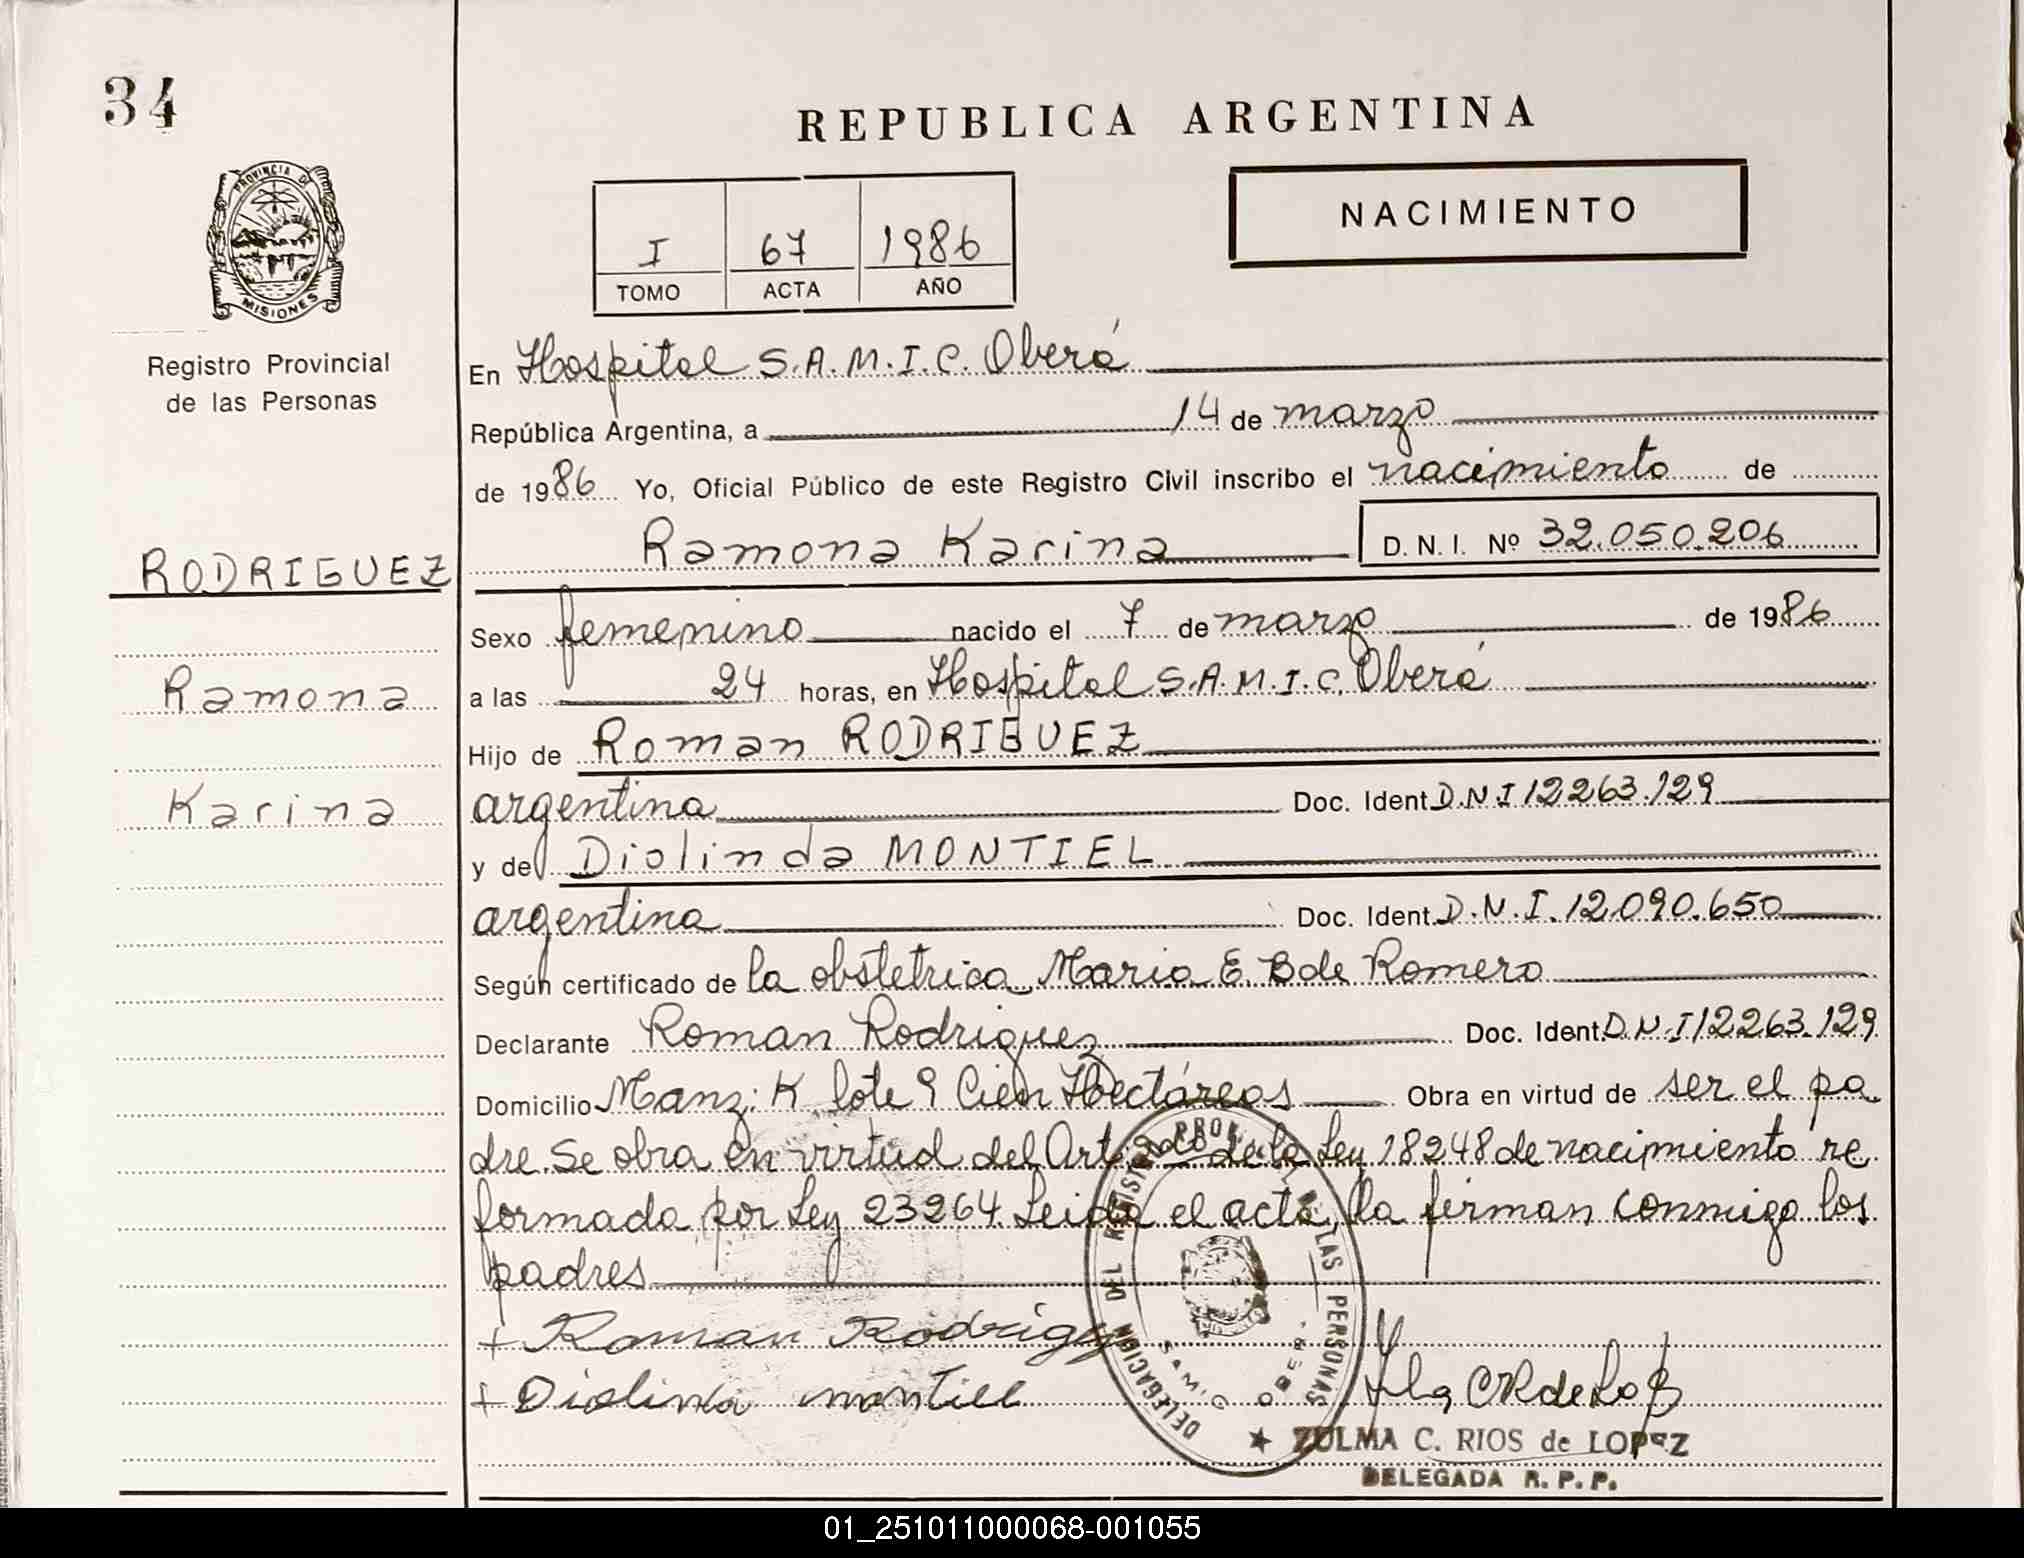 34
REPUBLICA ARGENTINA
PROVINCIA DE
MISIONES
Registro Provincial
de las Personas
NACIMIENTO
I 67 1986
TOMO ACTA AÑO
En Hospital S.A.M.I.C. Oberá
República Argentina, a 14 de marzo
de 1986 Yo, Oficial Público de este Registro Civil inscribo el nacimiento de
Ramona Karina D.N.I. Nº 32.050.206
RODRIGUEZ
Ramona
Karina
Sexo femenino nacido el 7 de marzo de 1986
a las 24 horas, en Hospital S.A.M.I.C. Oberá
Hijo de Roman RODRIGUEZ
argentina Doc. Ident D.N.I 12263.129
y de Diolinda MONTIEL
argentina Doc. Ident. D.N.I. 12.090.650
Según certificado de la obstetrica Maria E. B de Romero
Declarante Roman Rodriguez Doc. Ident. D.N.I 12263.129
Domicilio Manz: K lote 9 Cien Hectáreas Obra en virtud de ser el pa
dre. Se obra en virtud del Art. de la Ley 18248 de nacimiento re
formada por Ley 23264. Leida el acta, la firman conmigo los
padres
+ Roman Rodrigz
+ Diolinda montiel
DELEGACION DEL REGISTRO PROV. DE LAS PERSONAS
SAMIC OBERA
ZULMA C. RIOS de LOPEZ
DELEGADA R. P. P.
01_251011000068-001055